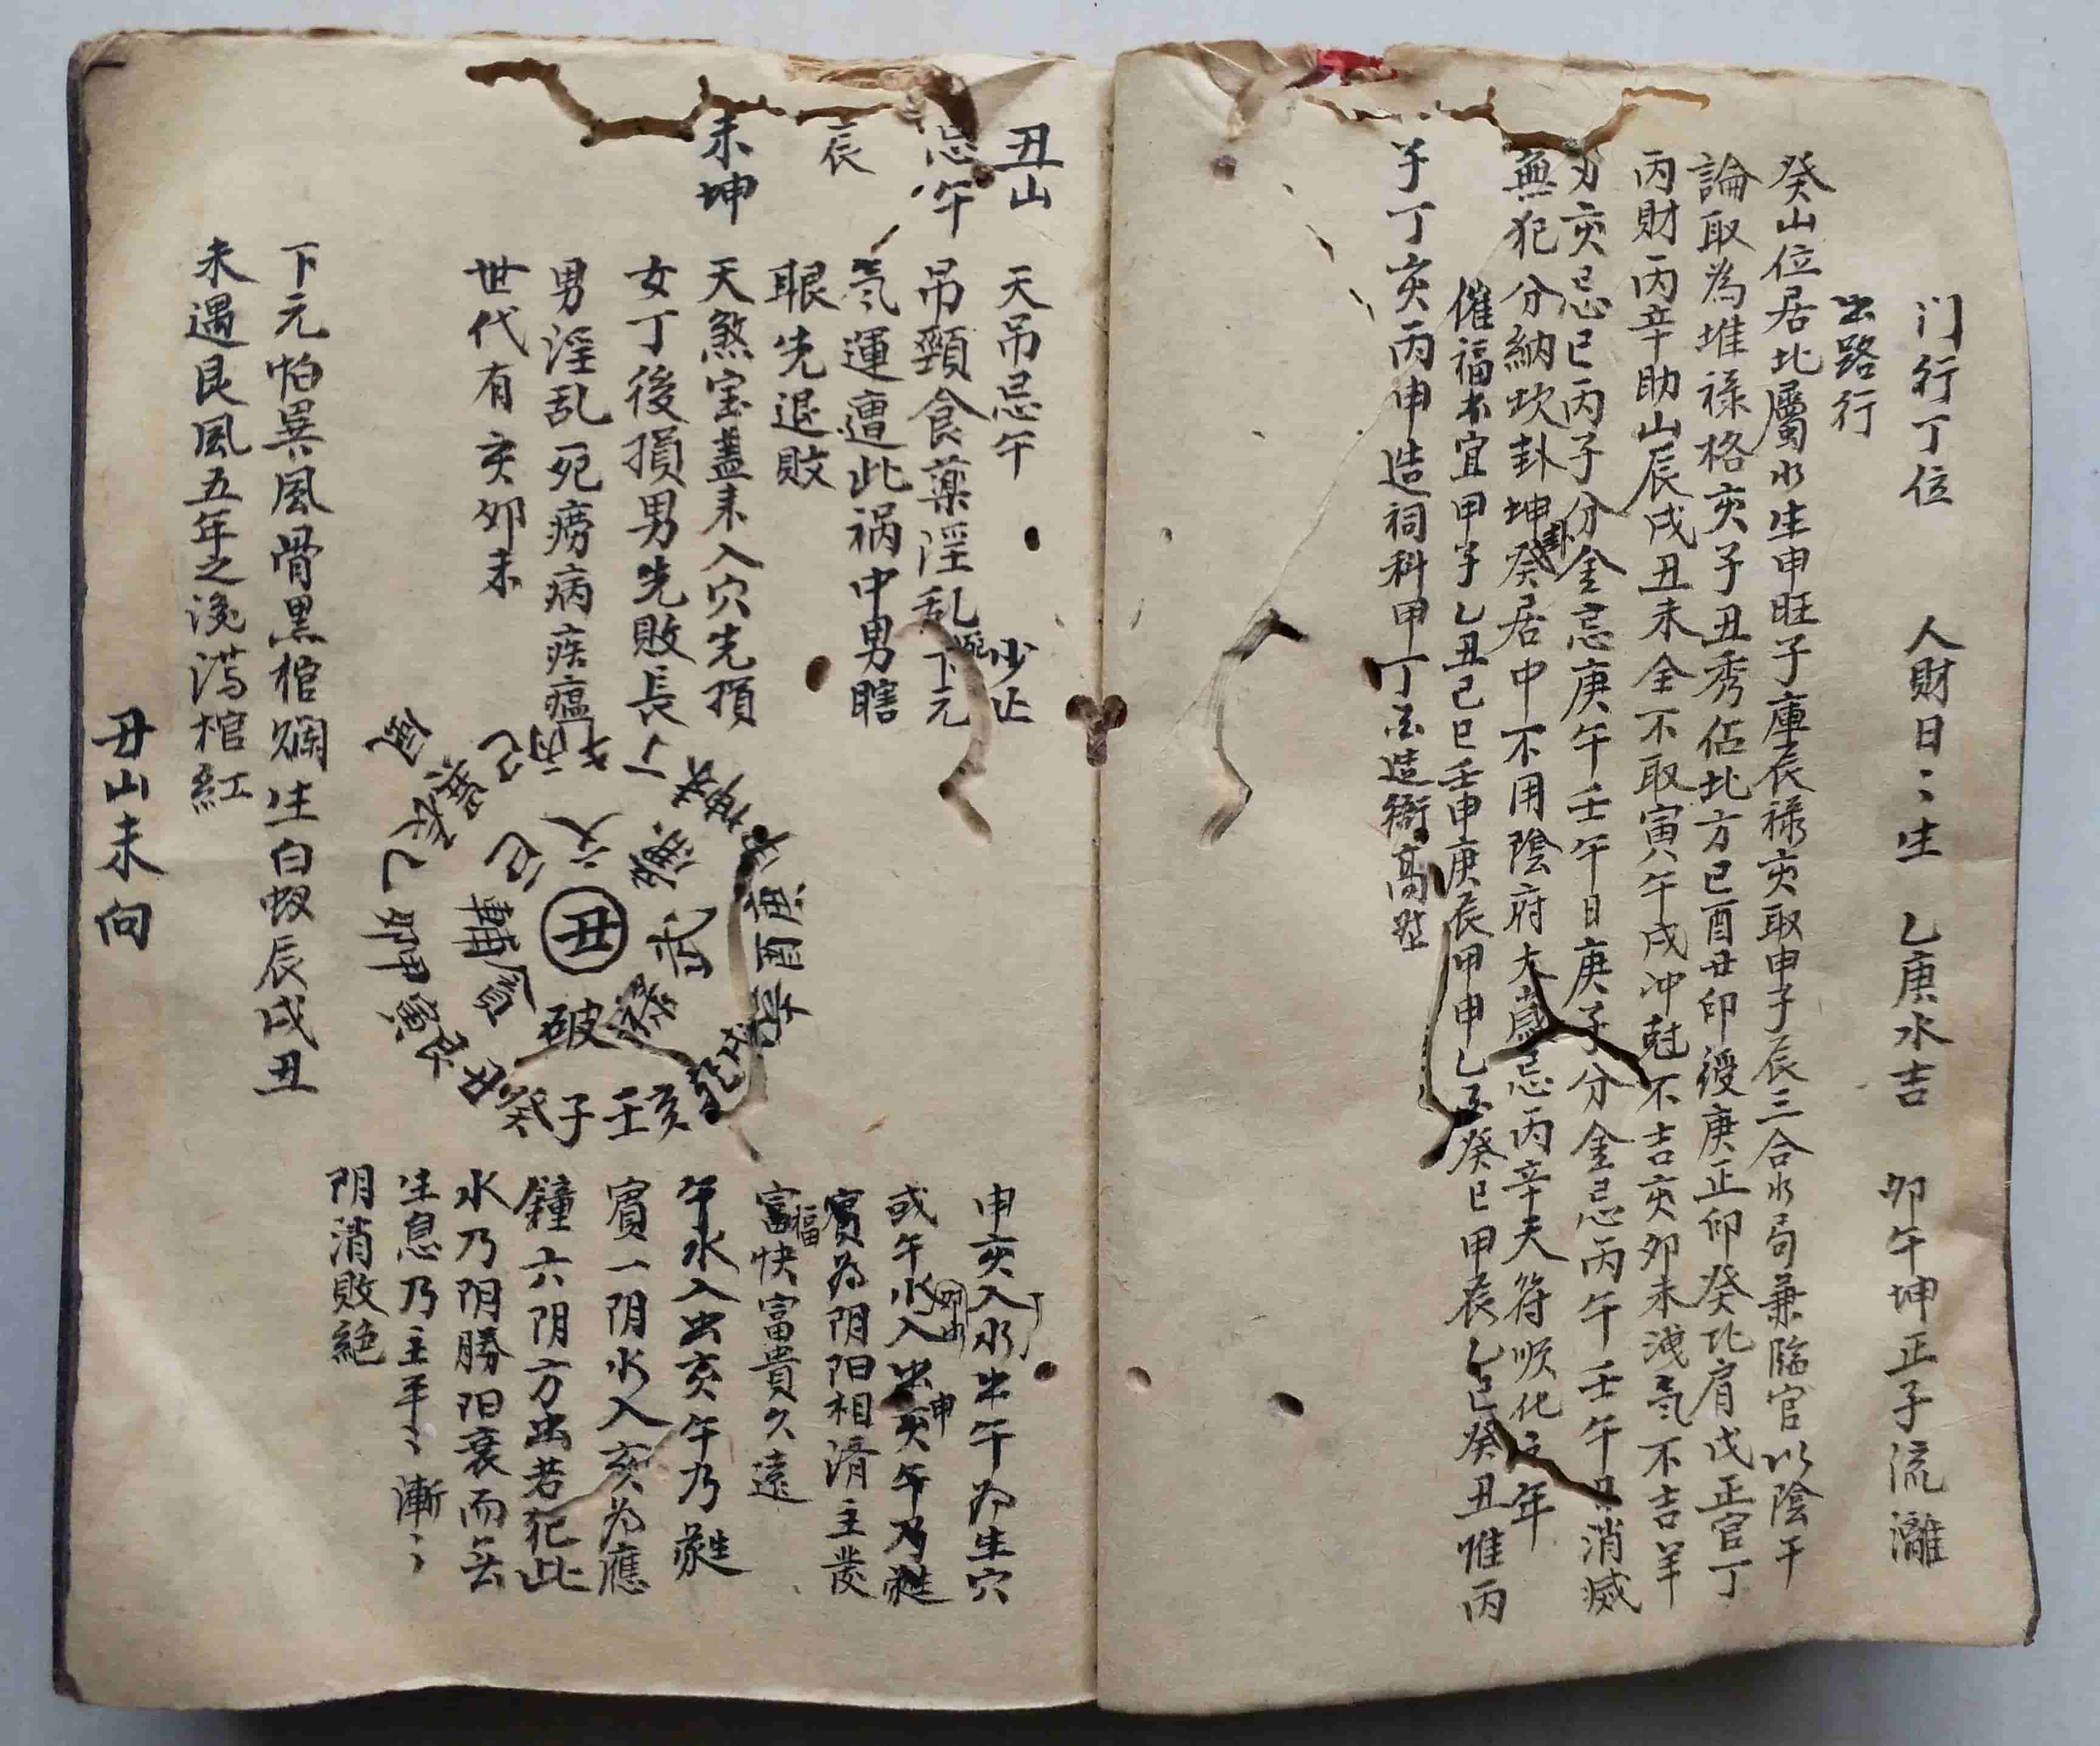 门行丁位 人財日〻生 乙庚水吉 卯午坤正子流灕
出路行
癸山位居北屬水生申旺子庫辰祿亥取申子辰三合水局兼臨官以陰干
論取為堆祿格亥子丑秀佔北方巳酉丑印綬庚正印癸比肩戊正官丁
丙財丙辛助山辰戌丑未全不取寅午戌冲尅不吉亥卯未洩氣不吉羊
刃亥忌巳丙子分金忌庚午壬午日庚子分金忌丙午壬午日消滅
無犯分納坎卦坤卦癸居中不用陰府太歲忌丙辛天符順化之年
催福不宜甲子乙丑己巳壬申庚辰甲申乙癸巳甲辰乙巳癸丑惟丙
子丁亥丙申造祠科甲丁造衙高
丑山 天吊忌午 少止
忌午 吊頸食藥淫乱死下元
辰 氣運遭此禍中男瞎
眼先退敗
未坤 天煞宝盖未入穴先損
女丁後損男先敗長
男淫乱死癆病疾瘟
世代有亥卯未
丙 巳 巽 辰 乙 卯 甲 寅 艮 丑 癸 子 壬 亥 乾 戌 辛 酉 庚 申 坤 未 丁 午
文 廉 武 祿 破 貪 輔 巨
丑
風
下元怕巽風骨黑棺爛生白蚁辰戌丑
未遇艮風五年之後满棺紅
丑山未向
申亥入水出午丁為生穴
或午水入卯山出亥申午乃蕤
賓為阴阳相濟主發
富福快富貴久遠
午水入出亥午乃蕤
賓一阴水入亥為應
鐘六阴方出若犯此
水乃阴勝阳衰而去
生息乃主平〻漸〻
阴消敗絕